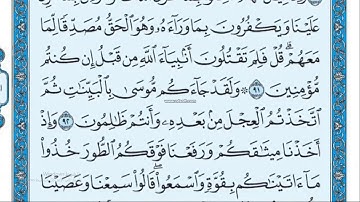 عَلَيْنَا وَيَكْفُرُونَ بِمَا وَرَآءَهُۥ وَهُوَ ٱلْحَقُّ مُصَدِّقًا لِّمَا
مَعَهُمْ ۗ قُلْ فَلِمَ تَقْتُلُونَ أَنۢبِيَآءَ ٱللَّهِ مِن قَبْلُ إِن كُنتُم
مُّؤْمِنِينَ ٩١ ۞ وَلَقَدْ جَآءَكُم مُّوسَىٰ بِٱلْبَيِّنَٰتِ ثُمَّ
ٱتَّخَذْتُمُ ٱلْعِجْلَ مِنۢ بَعْدِهِۦ وَأَنتُمْ ظَٰلِمُونَ ٩٢ وَإِذْ
أَخَذْنَا مِيثَٰقَكُمْ وَرَفَعْنَا فَوْقَكُمُ ٱلطُّورَ خُذُوا۟
مَآ ءَاتَيْنَٰكُم بِقُوَّةٍ وَٱسْمَعُوا۟ ۖ قَالُوا۟ سَمِعْنَا وَعَصَيْنَا